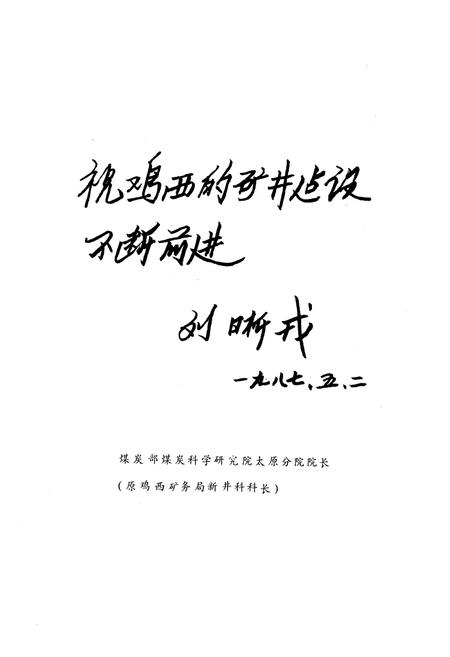 祝鸡西的矿井建设
不断前进
刘晰戎
一九八七、五、二
煤炭部煤炭科学研究院太原分院院长
(原鸡西矿务局新井科科长)